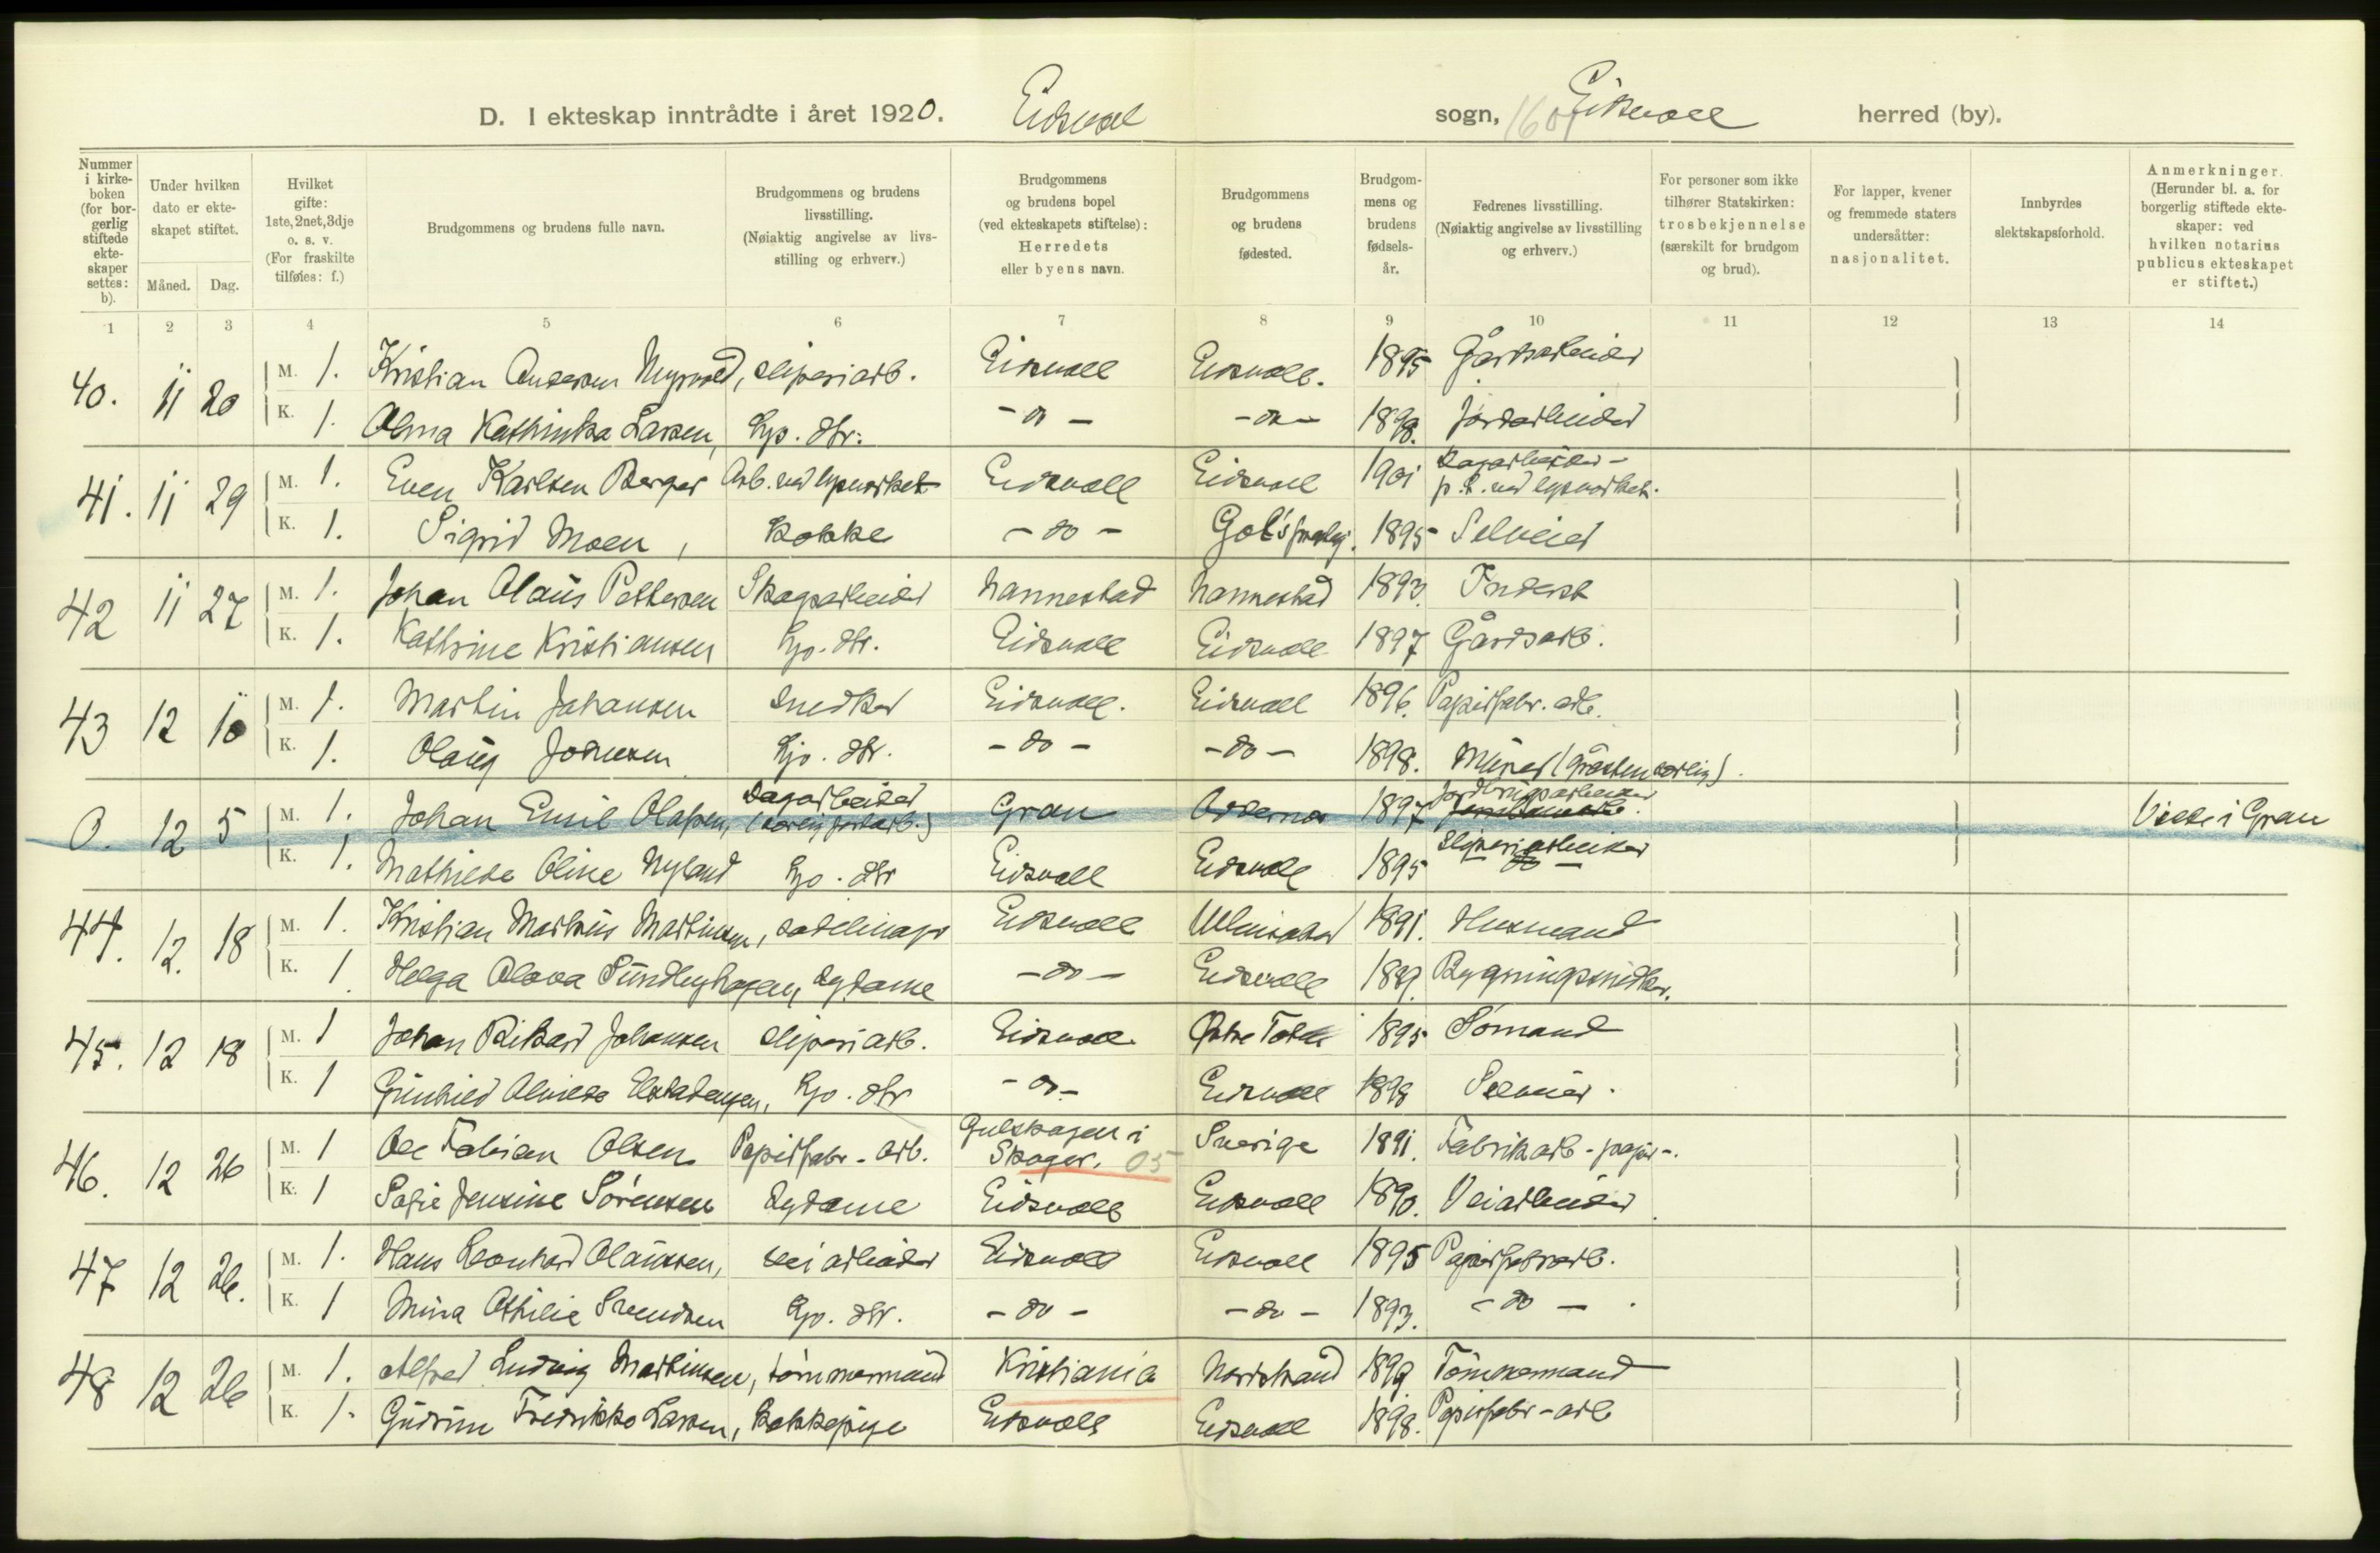 D. I ekteskap inntrådte i året 1920. Eidsvoll sogn, Eidsvoll herred (by).
Nummer i kirkeboken (for borgerlig stiftede ekteskaper settes: b).
Under hvilken dato er ekteskapet stiftet.
Måned. Dag.
Hvilket gifte: 1ste, 2net, 3dje o. s. v. (For fraskilte tilføies: f.)
Brudgommens og brudens fulle navn.
Brudgommens og brudens livsstilling. (Nøiaktig angivelse av livsstilling og erhverv.)
Brudgommens og brudens bopel (ved ekteskapets stiftelse): Herredets eller byens navn.
Brudgommens og brudens fødested.
Brudgommens og brudens fødselsår.
Fedrenes livsstilling. (Nøiaktig angivelse av livsstilling og erhverv.)
For personer som ikke tilhører Statskirken: trosbekjennelse (særskilt for brudgom og brud).
For lapper, kvener og fremmede staters undersåtter: nasjonalitet.
Innbyrdes slektskapsforhold.
Anmerkninger. (Herunder bl. a. for borgerlig stiftede ekteskaper: ved hvilken notarius publicus ekteskapet er stiftet.)
1 2 3 4 5 6 7 8 9 10 11 12 13 14
40. 11 20 M. 1. Kristian Andersen Myrvold, sliperiarb. Eidsvoll Eidsvoll. 1895 Gårdsarbeider
K. 1. Olma Kathinka Larsen, Hjo. dtr. - do - - do - 1898. Jordarbeider
41. 11 29 M. 1. Even Karlsen Berger Arb. ved lysverket Eidsvoll Eidsvoll 1901 Dagarbeider - p.t. ved lysverket.
K. 1. Sigrid Moen, kokke - do - Gol 1895 Selveier
42 11 27 M. 1. Johan Olaus Pettersen Skogsarbeider Nannestad Nannestad 1893. Inderst
K. 1. Kathrine Kristiansen Hjo. dtr. Eidsvoll Eidsvoll 1897 Gårdsarb.
43 12 10 M. 1. Martin Johansen Snedker Eidsvoll. Eidsvoll 1896. Papirfabr. arb.
K. 1. Olaug Johnsen Hjo. dtr. - do - - do - 1898. Murer (gråsten særlig).
0. 12 5 M. 1. Johan Emil Olafsen, Dagarbeider (særlig jordarb.) Gran 1897 Jordbrugsarbeider Viede i Gran
K. 1. Mathilde Oline Nyland Hjo. dtr Eidsvoll Eidsvoll 1895 Sliperiarbeider
44. 12. 18 M. 1. Kristian Markus Martinsen, sadelmager Eidsvoll Ullensaker 1891. Husmand
K. 1. Helga Olava Sundbyhagen, sydame - do - Eidsvoll 1889. Bygningssnedker.
45. 12 18 M. 1 Johan Rikard Johansen sliperiarb. Eidsvoll Østre Toten 1895 Sømand
K. 1 Gunhild Elstadengen, Hjo. dtr - do - Eidsvoll 1898 Selveier.
46. 12 26 M. 1 Ole Fabian Olsen Papirfabr. arb. Gulskogen i Skoger. 05 Sverige 1891. Fabrikarb - papir -.
K. 1 Sofie Jensine Sørensen Sydame Eidsvoll Eidsvoll 1890. Veiarbeider
47 12 26. M. 1. Hans Leonhard Olaussen, veiarbeider Eidsvoll Eidsvoll 1895 Papirfabrarb.
K. 1 Mina Othilie Svendsen Hjo. dtr. - do - - do - 1893. - do -
48 12 26 M. 1. Alfred Ludvig Martinsen, tømmermand Kristiania Nordstrand 1899 Tømmermand
K. 1. Gudrun Fredrikke Larsen, kokkepige Eidsvoll Eidsvoll 1898. Papirfabr-arb